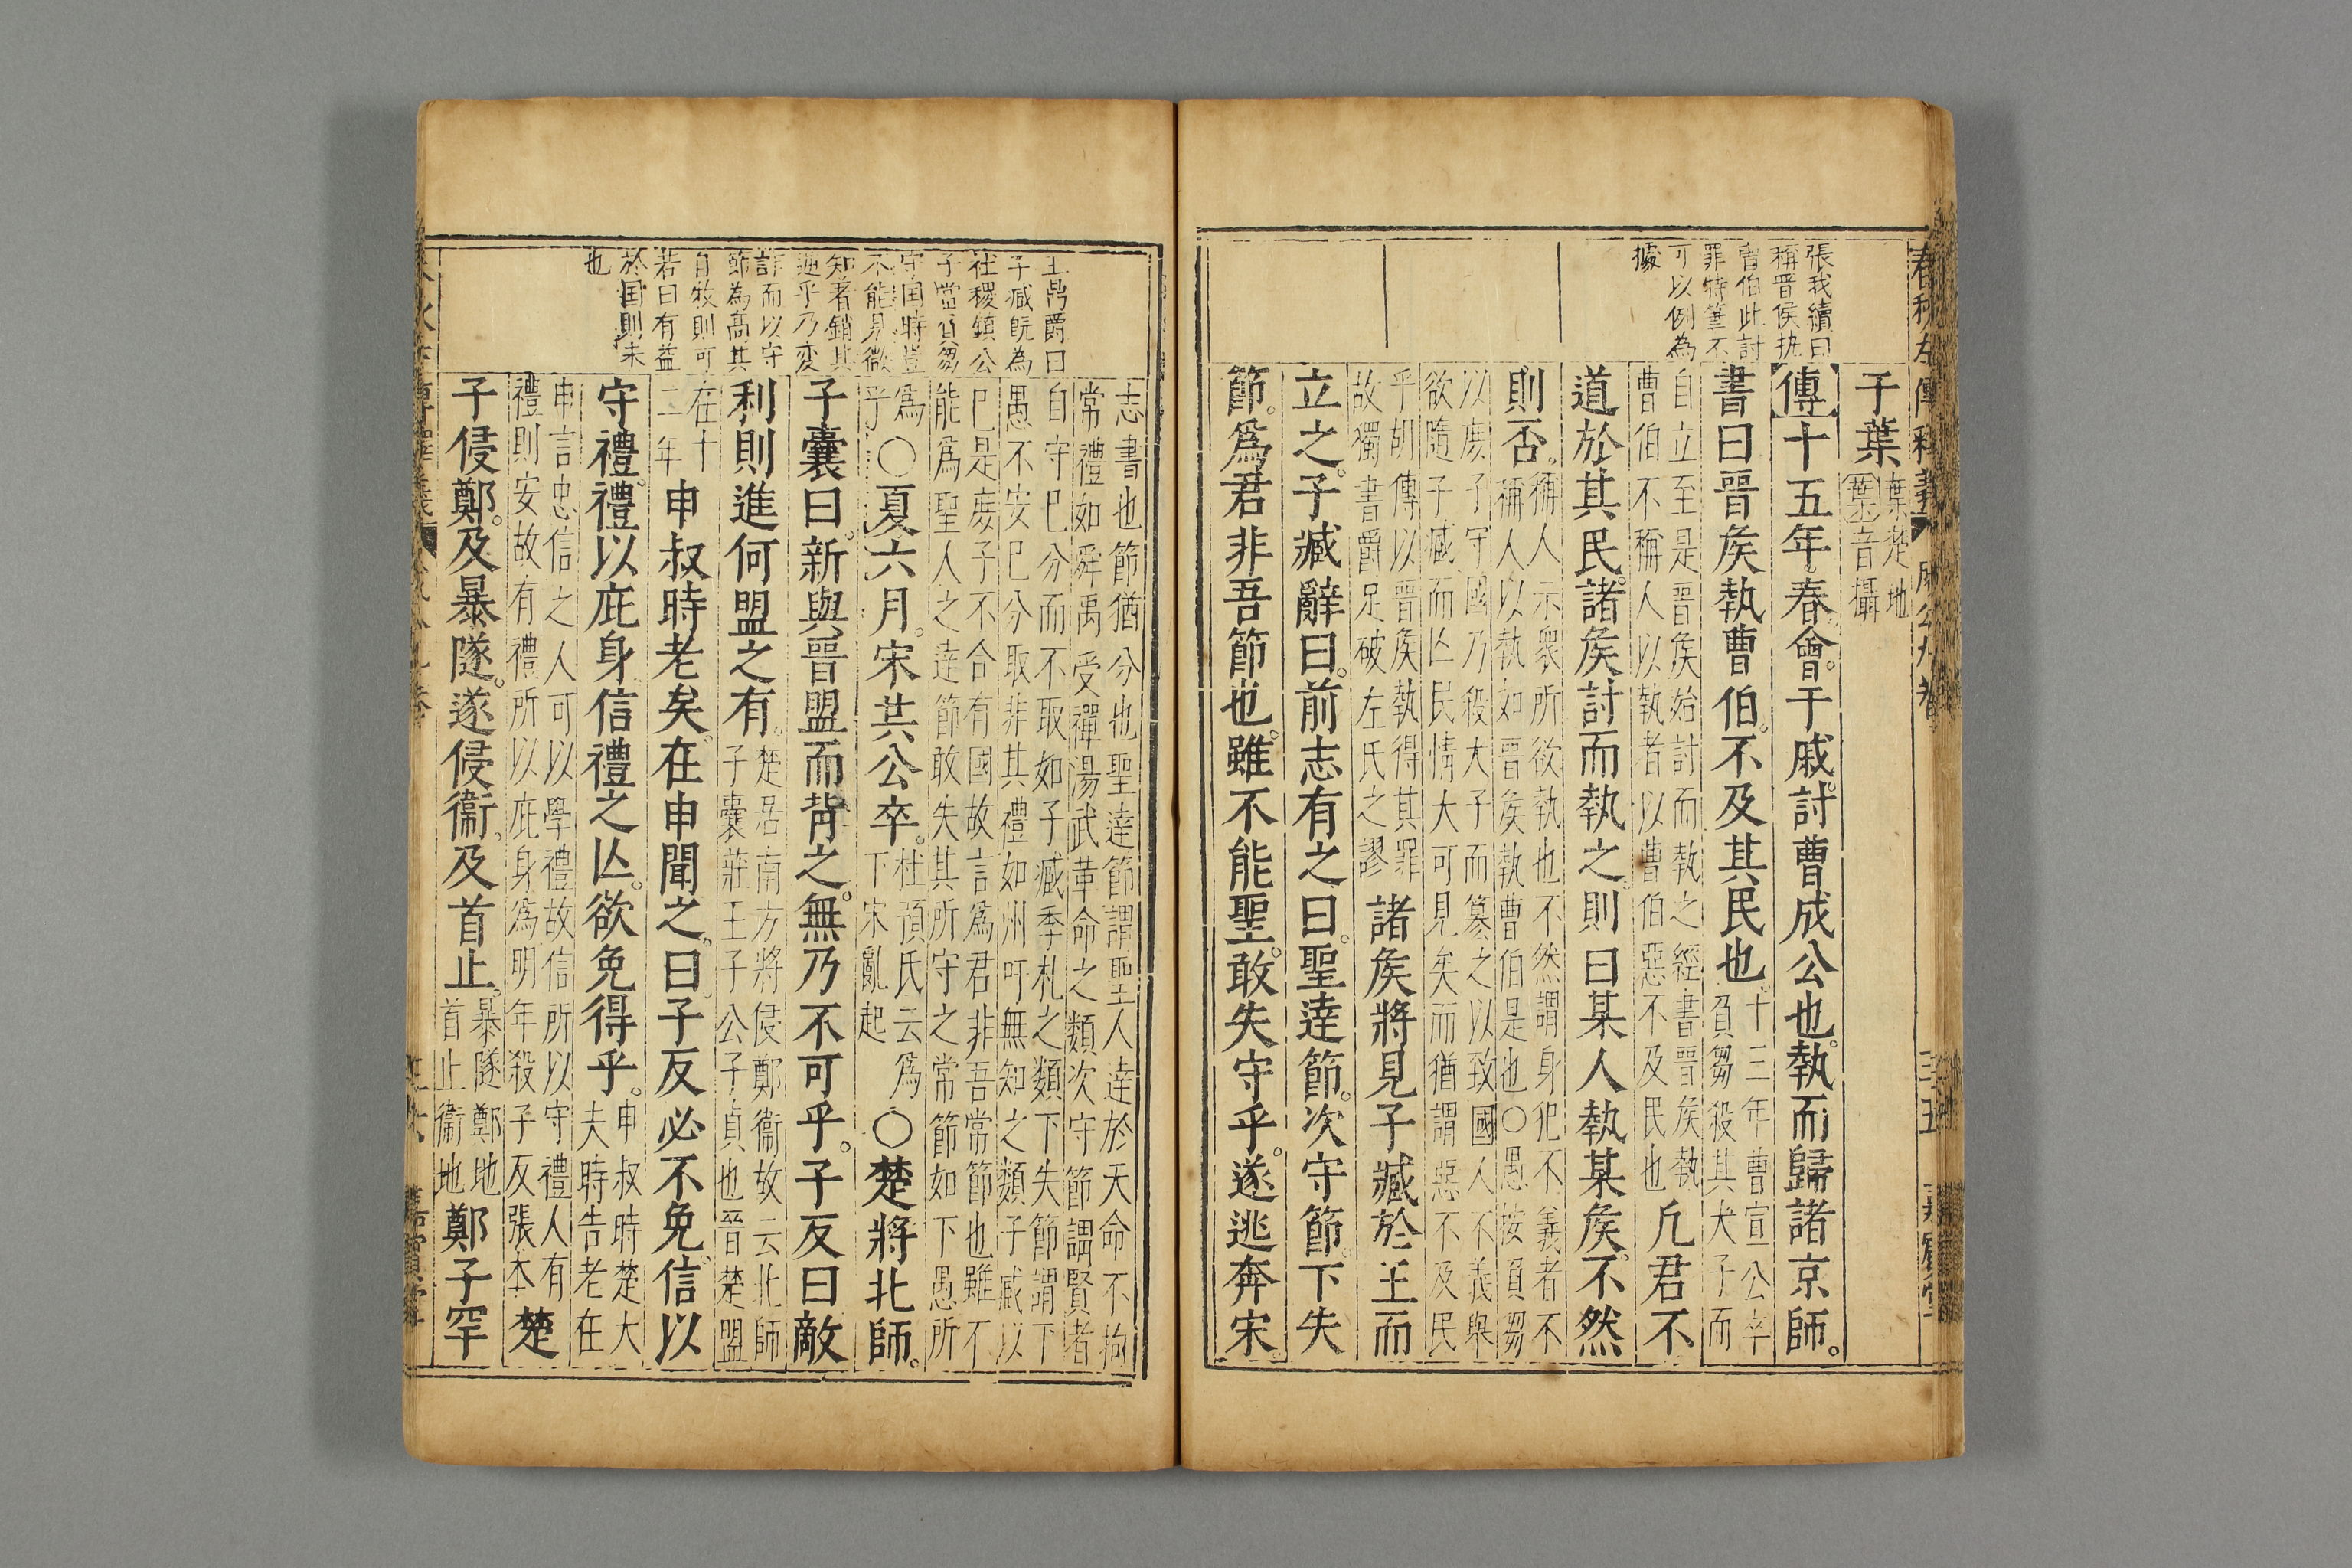 春秋左傳釋義 成公九卷 三五 嘉賓堂
張我續曰
稱晋侯执
曹伯此討
罪特筆不
可以例為
據
于葉葉楚地
葉音攝
傳十五年春會于戚討曹成公也執而歸諸京師
書曰晉矦執曹伯不及其民也十三年曹宣公卒
負芻殺其大子而
自立至是晋矦始討而執之經書晋矦執
曹伯不稱人以執者以曹伯惡不及民也凡君不
道於其民諸矦討而執之則曰某人執某矦不然
則否稱人示衆所欲執也不然謂身犯不義者不
稱人以執如晋矦執曹伯是也○愚按負芻
以庻子守國乃殺大子而簒之以致國人不義與
欲隨子臧而亾民情大可見矣而猶謂惡不及民
乎胡傳以晋矦執得其罪
故獨書爵足破左氏之謬諸矦將見子臧於王而
立之子臧辭曰前志有之曰聖達節次守節下失
節爲君非吾節也雖不能聖敢失守乎遂逃奔宋
王鼎爵曰
子臧既為
社稷鎮公
子當負芻
守国時豈
不能見微
知著銷其
逓乎乃変
詐而以守
節為高其
自牧則可
若曰有益
於国則未
也
志書也節猶分也聖達節謂聖人達於天命不拘
常禮如舜禹受禪湯武革命之類次守節謂賢者
自守巳分而不取如子臧季札之類下失節謂下
愚不安巳分取非其禮如州吁無知之類子臧以
巳是庻子不合有國故言爲君非吾常節也雖不
能爲聖人之達節敢失其所守之常節如下愚所
爲
乎○夏六月宋共公卒杜預氏云爲
下宋亂起○楚將北師
子囊曰新與晉盟而背之無乃不可乎子反曰敵
利則進何盟之有楚居南方將侵鄭衞故云北師
子囊莊王子公子貞也晋楚盟
在十
二年申叔時老矣在申聞之曰子反必不免信以
守禮禮以庇身信禮之亾欲免得乎申叔時楚大
夫時告老在
申言忠信之人可以學禮故信所以守禮人有
禮則安故有禮所以庇身爲明年殺子反張本楚
子侵鄭及暴隧遂侵衞及首止暴隧鄭地
首止衞地鄭子罕